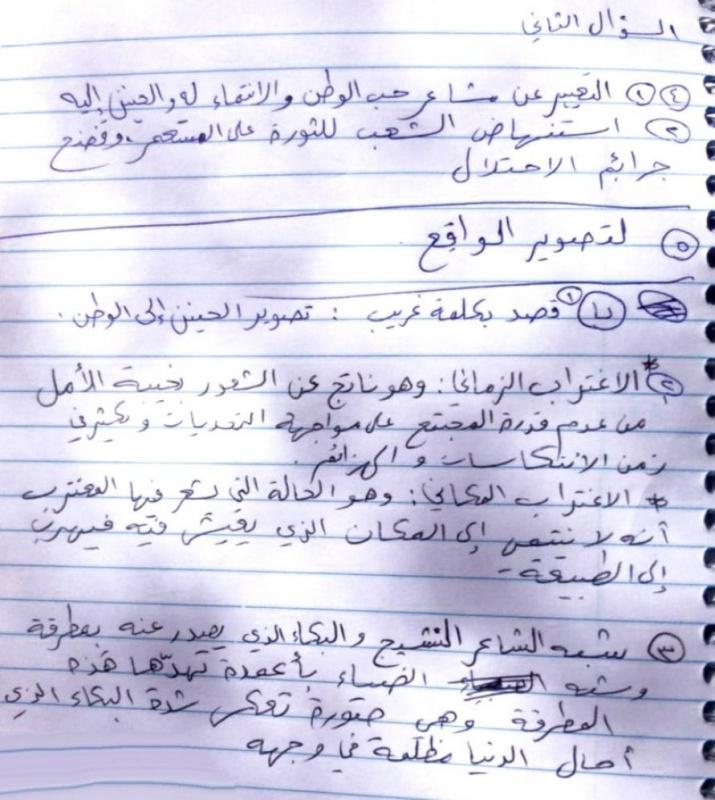 السؤال الثاني
④ ① التعبير عن مشاعر حب الوطن والانتماء له والحنين إليه
② استنهاض الشعب للثورة على المستعمر، وفضح
جرائم الاحتلال
⑤ لتصوير الواقع.
ب ① قصد بكلمة غريب : تصوير الحنين إلى الوطن.
② * الاغتراب الزماني: وهو ناتج عن الشعور بخيبة الأمل
من عدم قدرة المجتمع على مواجهة التحديات و يكثر في
زمن الانتكاسات و الهزائم.
* الاغتراب المكاني: وهو الحالة التي يشعر فيها المغترب
أنه لا ينتمي إلى المكان الذي يعيش فيه فيهرب
إلى الطبيعة -
③ شبه الشاعر النشيج والبكاء الذي يصدر عنه بمطرقة
وشبه الضياء بأعمدة تهدّها هذه
المطرقة وهي صورة تعكس شدة البكاء الذي
أحال الدنيا مظلمة في وجهه